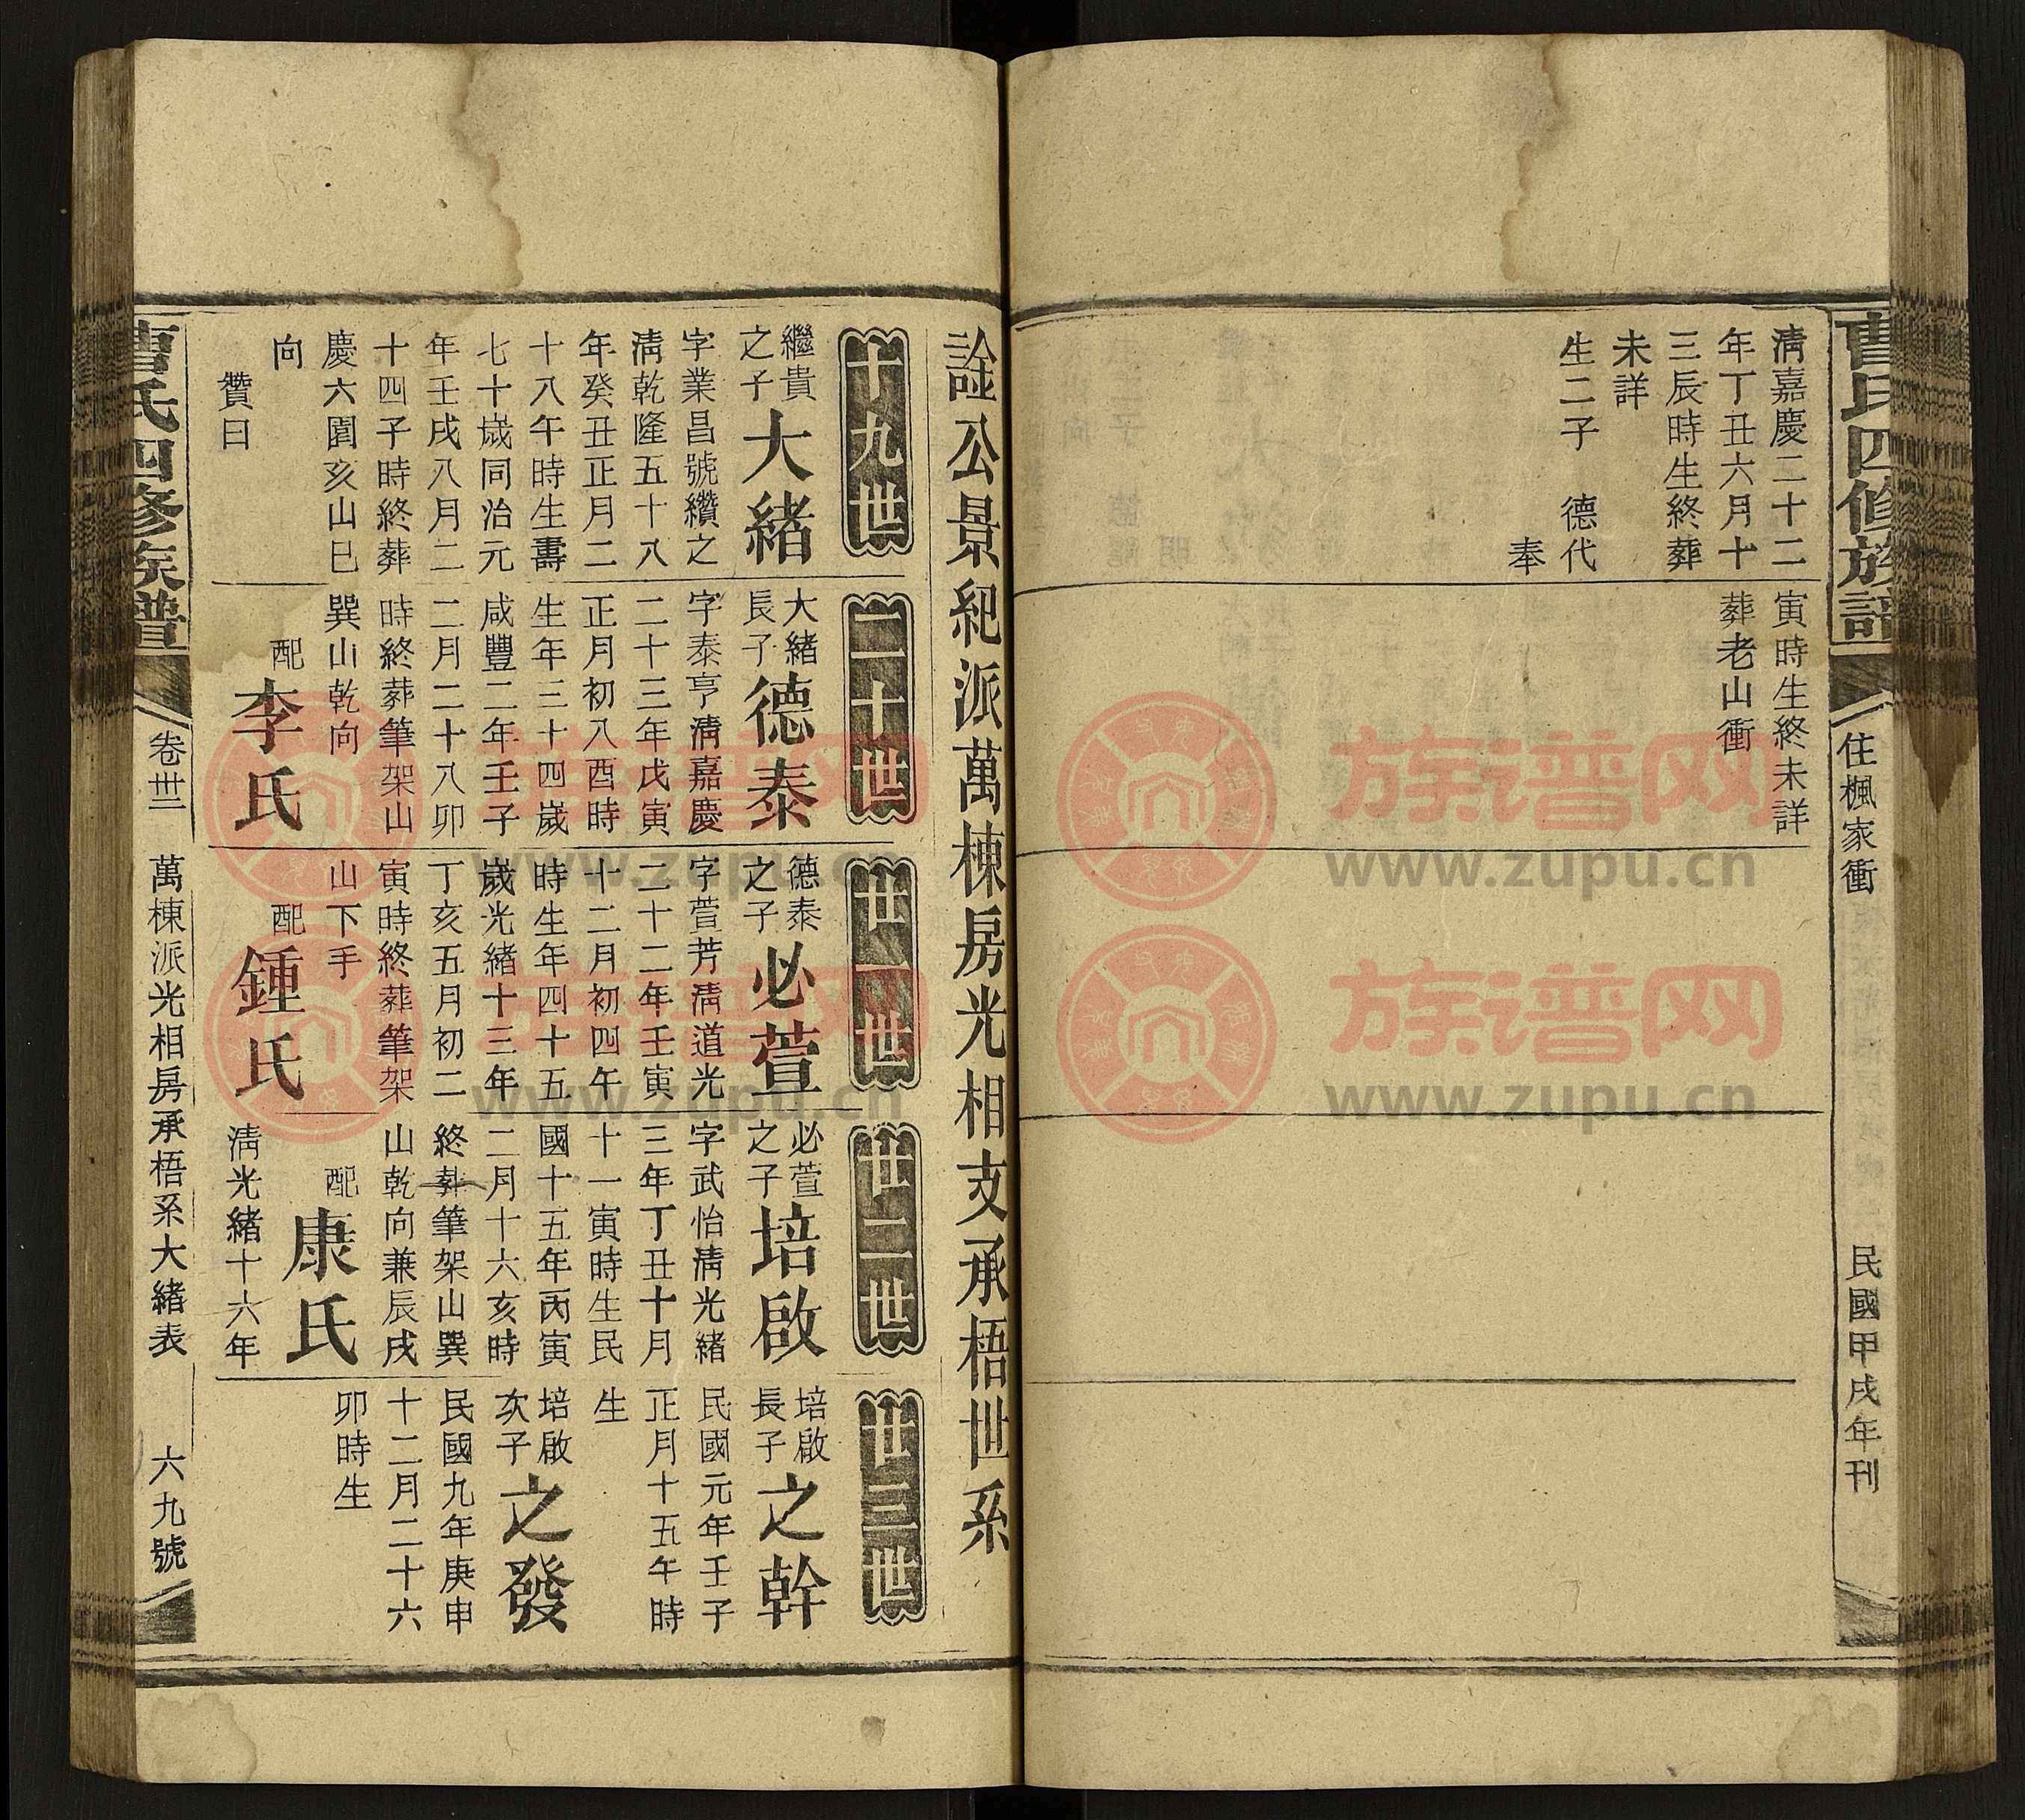 曹氏四修族譜
住楓家衝
民國甲戌年刊
淸嘉慶二十二
年丁丑六月十
三辰時生終葬
未詳
生二子　德代
奉
寅時生終未詳
葬老山衝
詮公景紀派萬棟房光相支承梧世系
十九世
繼貴
之子
大緒
字業昌號纘之
淸乾隆五十八
年癸丑正月二
十八午時生壽
七十歲同治元
年壬戌八月二
十四子時終葬
慶六園亥山巳
向
贊曰
二十世
大緒
長子
德泰
字泰亨淸嘉慶
二十三年戊寅
正月初八酉時
生年三十四歲
咸豐二年壬子
二月二十八卯
時終葬筆架山
巽山乾向
配
李氏
廿一世
德泰
之子
必萱
字萱芳淸道光
二十二年壬寅
十二月初四午
時生年四十五
歲光緒十三年
丁亥五月初二
寅時終葬筆架
山下手
配
鍾氏
廿二世
必萱
之子
培啟
字武怡淸光緒
三年丁丑十月
十一寅時生民
國十五年丙寅
二月十六亥時
終葬筆架山巽
山乾向兼辰戌
配
康氏
淸光緒十六年
廿三世
培啟
長子
之幹
民國元年壬子
正月十五午時
生
培啟
次子
之發
民國九年庚申
十二月二十六
卯時生
曹氏四修族譜
卷卅二
萬棟派光相房承梧系大緒表
六九號
族谱网
www.zupu.cn
族谱网
www.zupu.cn
族谱网
www.zupu.cn
族谱网
www.zupu.cn